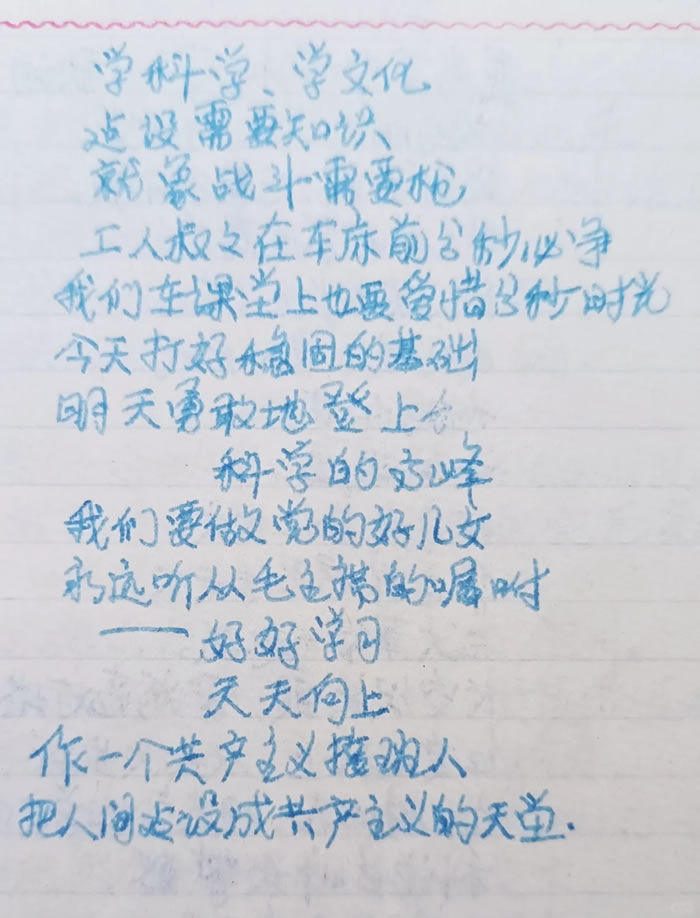 学科学、学文化
建设需要知识
就象战斗需要枪
工人叔々在车床前分秒必争
我们在课堂上也要爱惜分秒时光
今天打好稳固的基础
明天勇敢地登上
科学的高峰
我们要做党的好儿女
永远听从毛主席的嘱咐
——好好学习
天天向上
作一个共产主义接班人
把人间建设成共产主义的天堂.